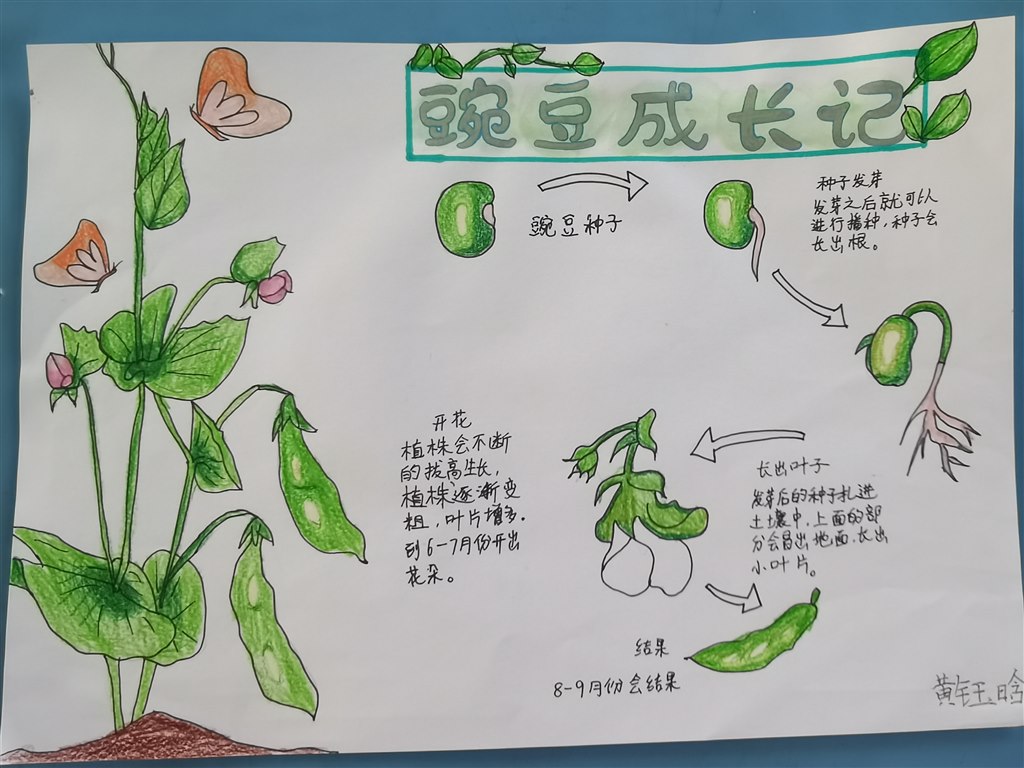 豌豆成长记
豌豆种子
种子发芽
发芽之后就可以
进行播种,种子会
长出根。
长出叶子
发芽后的种子扎进
土壤中,上面的部
分会冒出地面,长出
小叶片。
开花
植株会不断
的拔高生长,
植株逐渐变
粗,叶片增多.
到6-7月份开出
花朵。
结果
8-9月份会结果